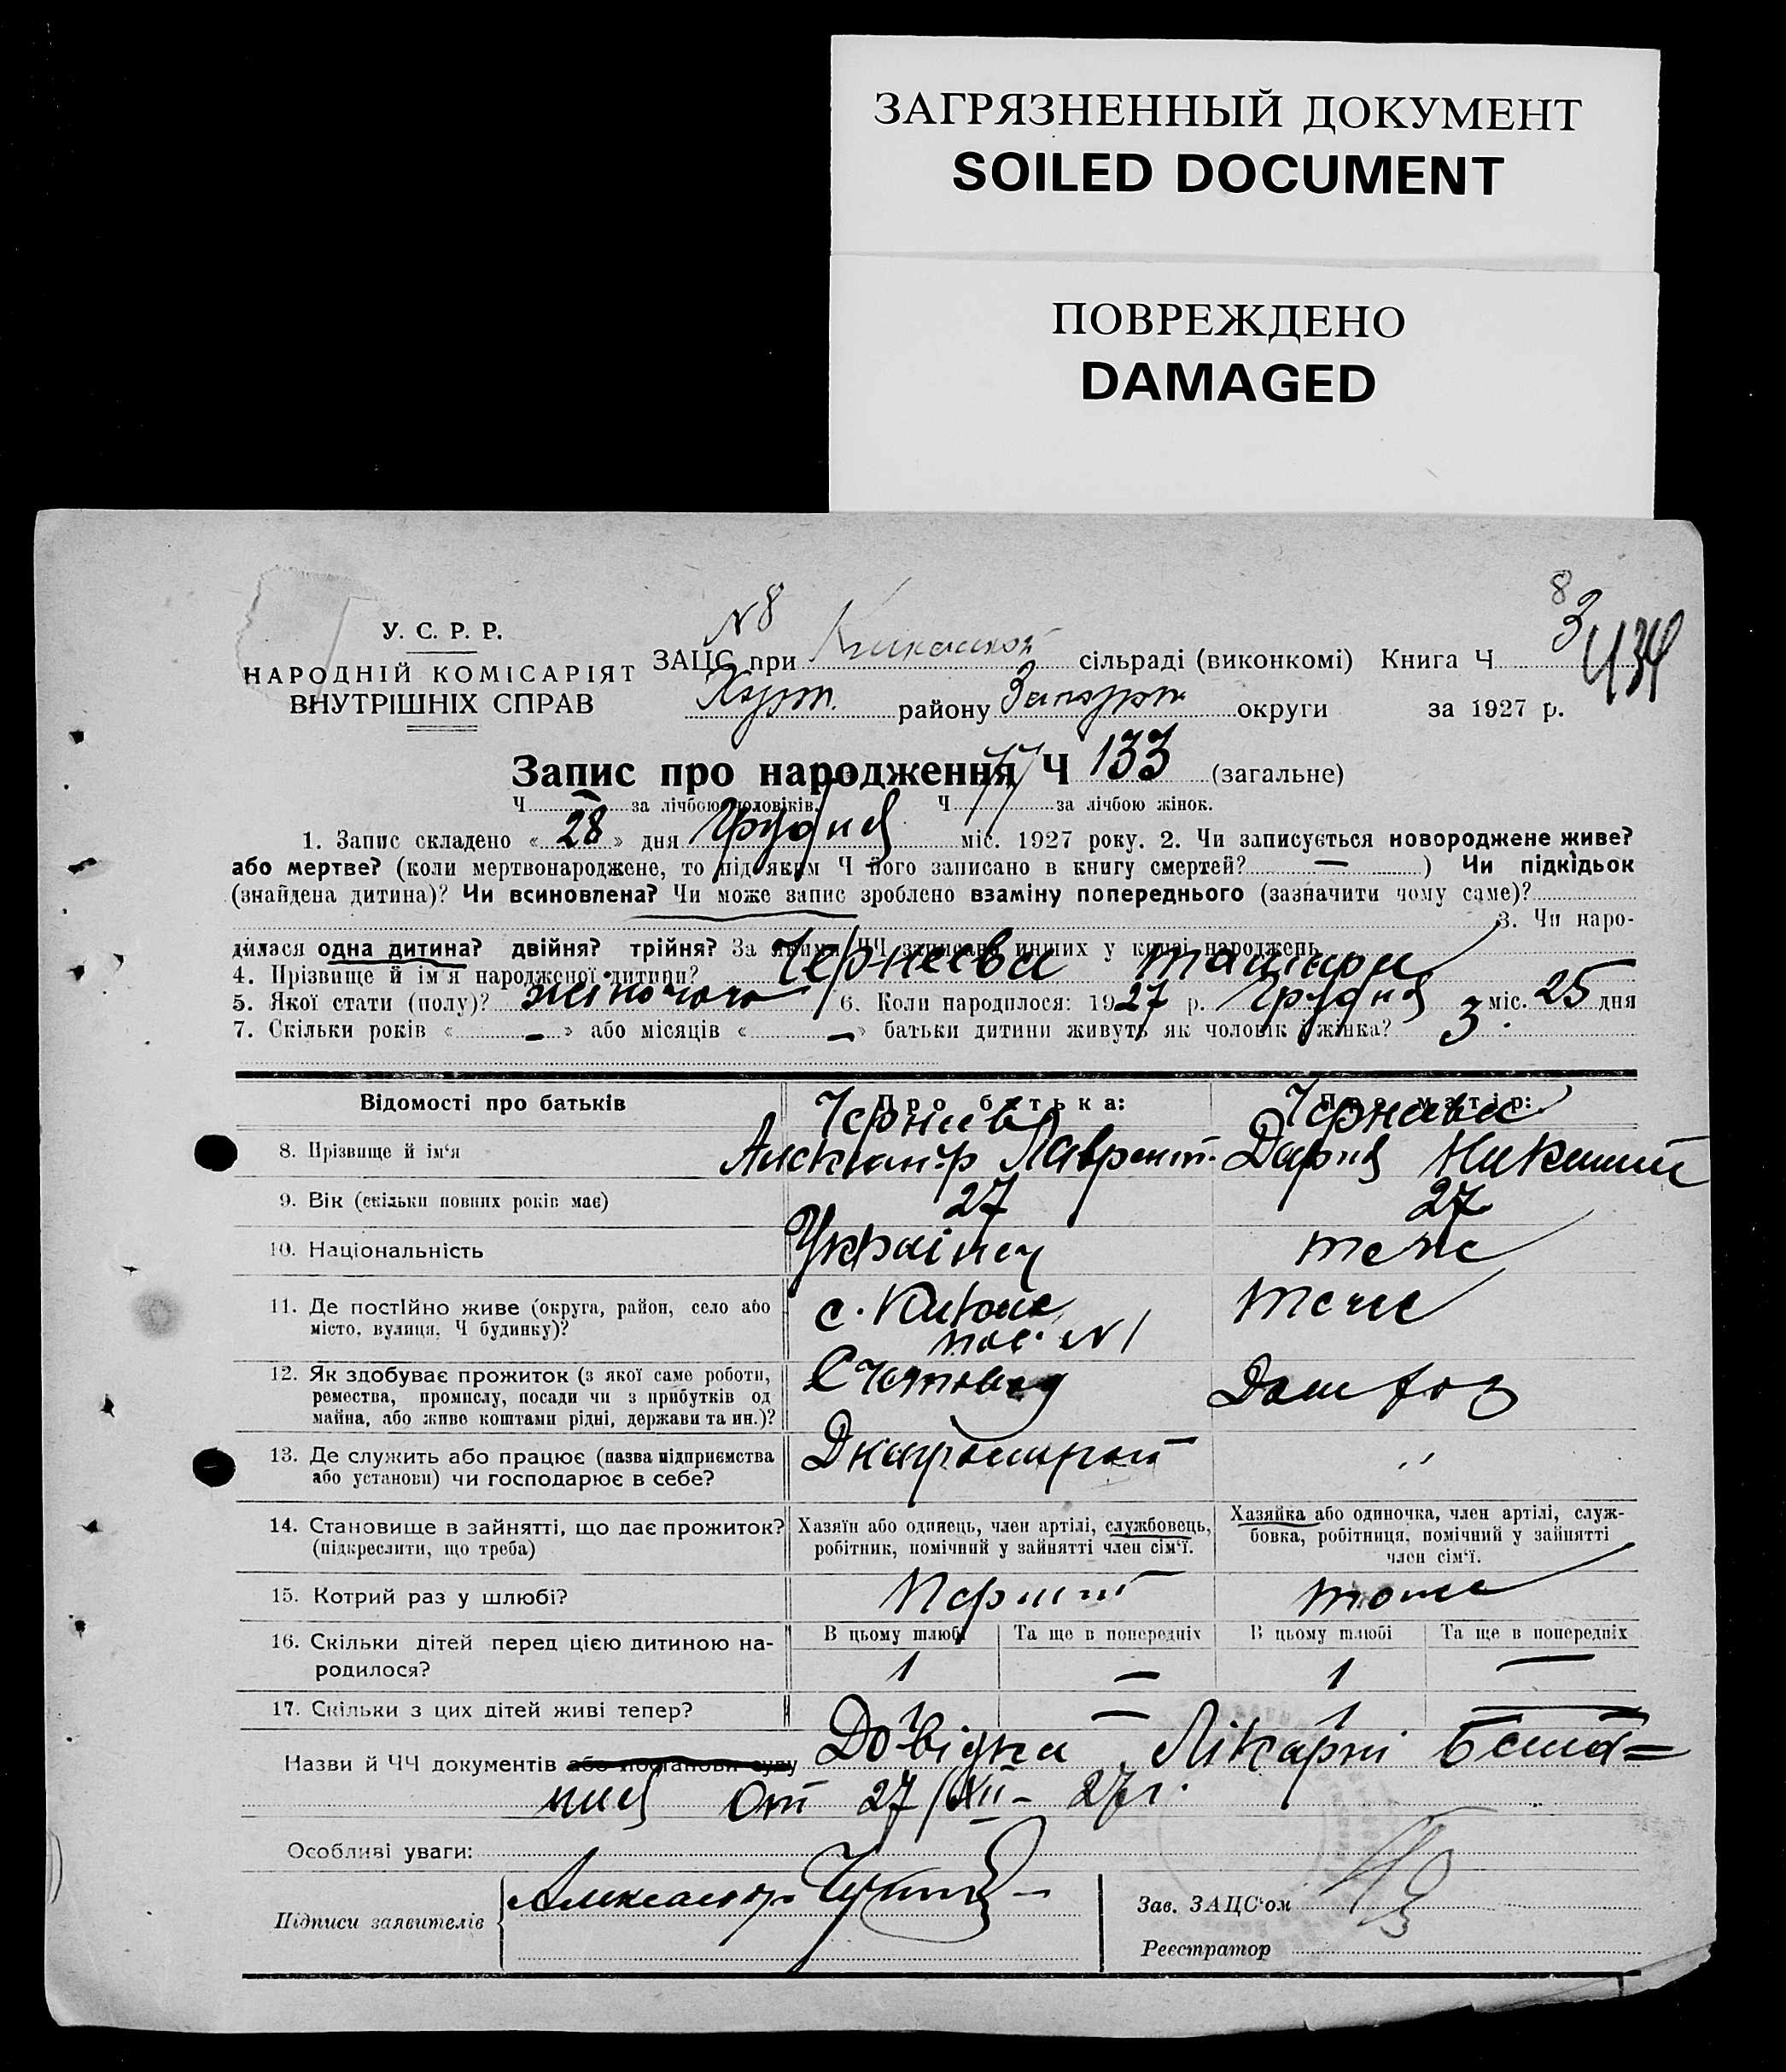 ЗАГРЯЗНЕННЫЙ ДОКУМЕНТ
SOILED DOCUMENT
ПОВРЕЖДЕНО
DAMAGED
У. С. Р. Р.
НАРОДНІЙ КОМІСАРІЯТ
ВНУТРІШНІХ СПРАВ
N 8
8
3
434
ЗАЦС при сільраді (виконкомі) Книга Ч
Хорт. району Запорож округи за 1927 р.
Запис про народження Ч 133 (загальне)
Ч за лічбою чоловіків. Ч 77 за лічбою жінок.
1. Запис складено « 28 » дня Грудня міс. 1927 року. 2. Чи записується новороджене живе?
або мертве? (коли мертвонароджене, то під яким Ч його записано в книгу смертей? — ) Чи підкідьок
(знайдена дитина)? Чи всиновлена? Чи може запис зроблено взаміну попереднього (зазначити чому саме)?
3. Чи наро-
дилася одна дитина? двійня? трійня? За якими ЧЧ записано инших у книзі народжень
4. Прізвище й ім'я народженої дитини? Чернеева
5. Якої стати (полу)? жіночого 6. Коли народилося: 1927 р. Грудня міс. 25 дня
7. Скільки років « — » або місяців « — » батьки дитини живуть як чоловік і жінка? 3
Відомості про батьків Про батька: Про матір:
8. Прізвище й ім'я Александр Лаврент. Дария
9. Вік (скільки повних років має) 27 27
10. Національність Українец тоже
11. Де постійно живе (округа, район, село або місто, вулиця, Ч будинку)? с. Кичкас пос. N 1 тоже
12. Як здобуває прожиток (з якої саме роботи, ремества, промислу, посади чи з прибутків од майна, або живе коштами рідні, держави та ин.)? Счетовод Домхоз
13. Де служить або працює (назва підприємства або установи) чи господарює в себе? Днепрострой "
14. Становище в зайнятті, що дає прожиток? (підкреслити, що треба) Хазяїн або одинець, член артілі, службовець, робітник, помічний у зайнятті член сім'ї. Хазяйка або одиночка, член артілі, служ-бовка, робітниця, помічний у зайнятті член сім'ї.
15. Котрий раз у шлюбі? Перший тоже
16. Скільки дітей перед цією дитиною на-родилося? В цьому шлюбі Та ще в попередніх В цьому шлюбі Та ще в попередніх
1 — 1 —
17. Скільки з цих дітей живі тепер? 1 — 1 —
Назви й ЧЧ документів або постанови суду Довідка Лікарні
от 27/XII - 27 г.
Особливі уваги:
Підписи заявителів Александр
Зав. ЗАЦС'ом
Реєстратор